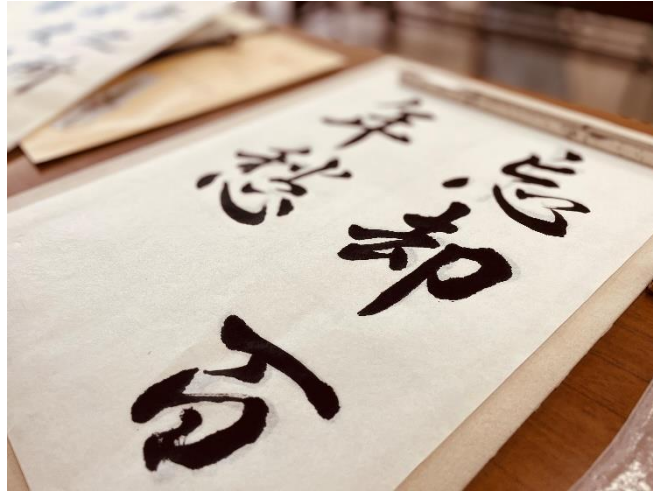 忘却百
年愁